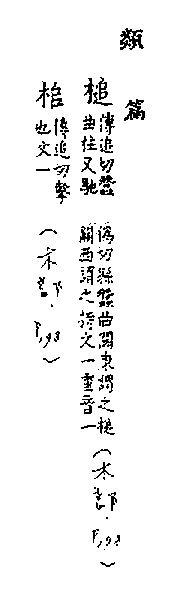 類篇
槌 傳追切蠶
曲柱又馳
偽切縣蠶曲關東謂之槌
關西謂之文一重音一
(木部.P.198)
桘 傳追切擊
也文一
(木部.P.198)